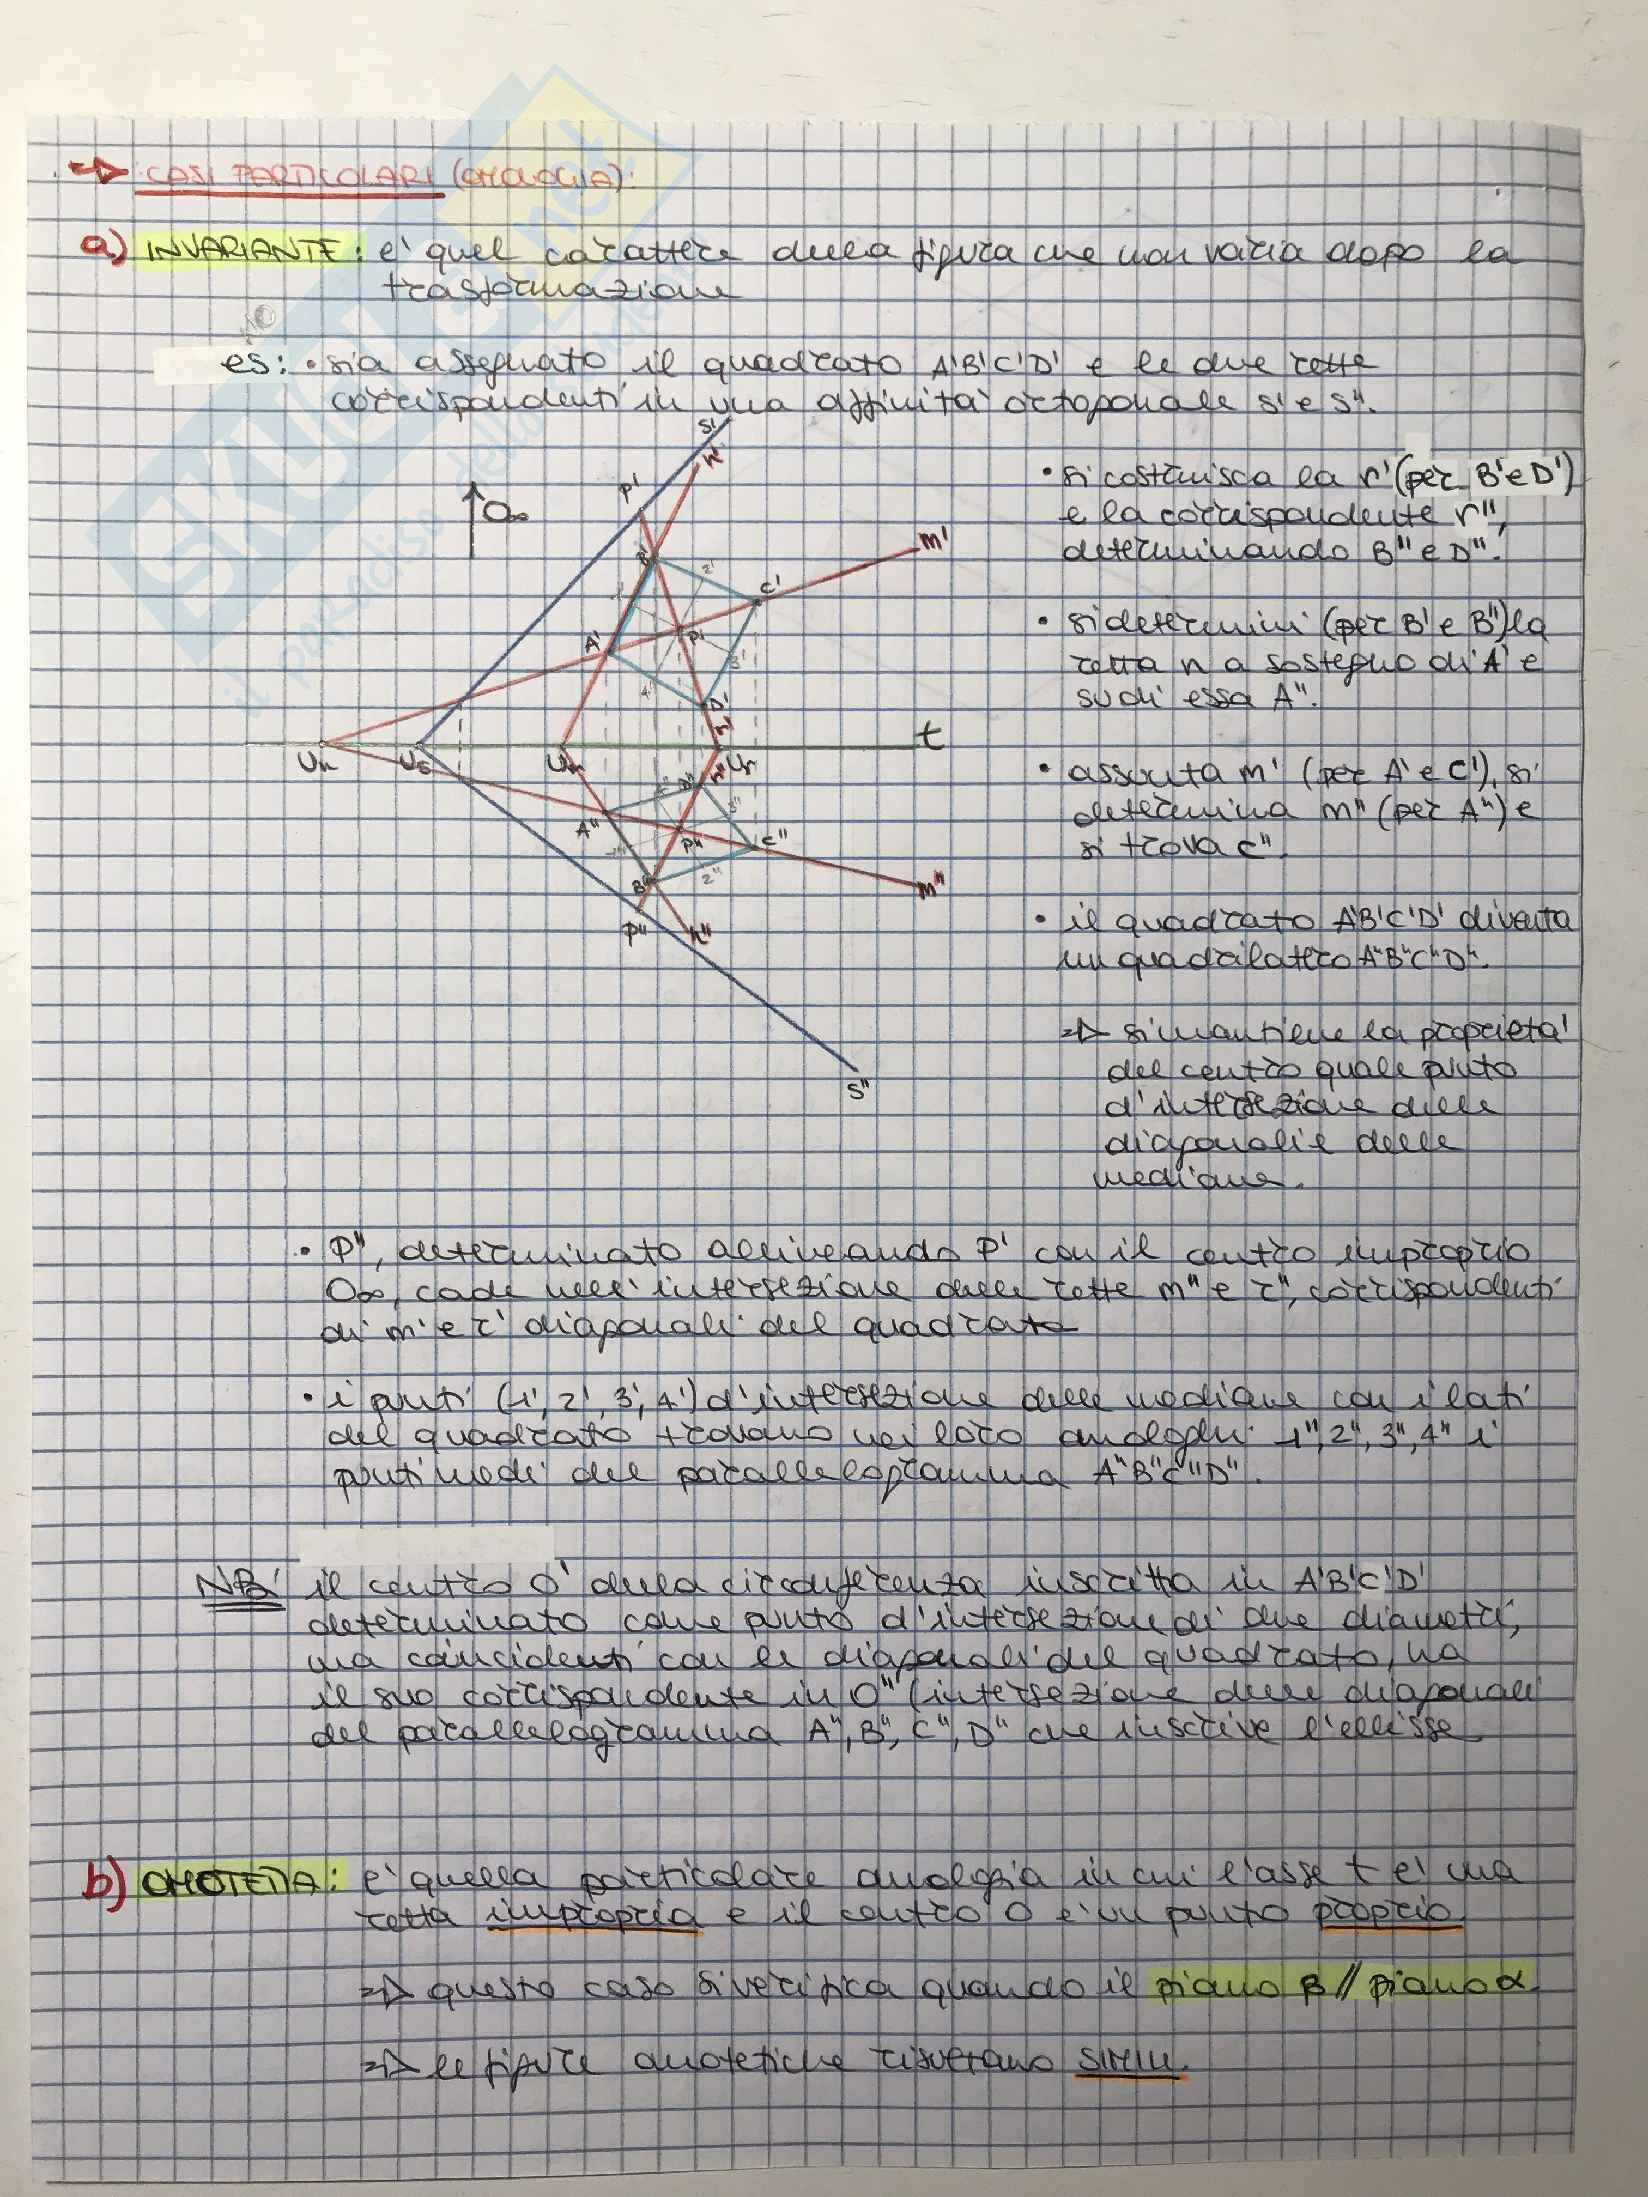 CASI PARTICOLARI (OMOLOGIA):
a) INVARIANTE: e' quel carattere della figura che non varia dopo la
trasformazione
es: • sia assegnato il quadrato A'B'C'D' e le due rette
corrispondenti in una affinità ortogonale s' e s".
• si costruisca la r' (per B' e D')
e la corrispondente r",
determinando B" e D".
• si determini (per B' e B") la
retta n a sostegno di A' e
su di essa A".
• assunta m' (per A' e C'), si
determina m" (per A") e
si trova C".
• il quadrato A'B'C'D' diventa
un quadrilatero A"B"C"D".
=> si mantiene la proprietà
del centro quale punto
d'intersezione delle
diagonali e delle
mediane.
s'
n'
P'
O∞
B'
2'
m'
C'
1'
A'
P'
3'
4'
D'
r'
t
Un
Us
Um
Ur
r"
4"
D"
3"
A"
P"
C"
1"
2"
B"
m"
P"
n"
s"
• P", determinato allineando P' con il centro improprio
O∞, cade nell'intersezione delle rette m" e r", corrispondenti
di m' e r' diagonali del quadrato
• i punti (1', 2', 3', 4') d'intersezione delle mediane con i lati
del quadrato trovano nei loro omologhi 1", 2", 3", 4" i
punti medi del parallelogramma A"B"C"D".
NB: il centro O' della circonferenza inscritta in A'B'C'D'
determinato come punto d'intersezione di due diametri,
ma coincidenti con le diagonali del quadrato, ha
il suo corrispondente in O" (intersezione delle diagonali
del parallelogramma A", B", C", D" che inscrive l'ellisse
b) OMOTETIA: e' quella particolare omologia in cui l'asse t e' una
retta impropria e il centro O e' un punto proprio
=> questo caso si verifica quando il piano β // piano α.
=> le figure omotetiche risultano SIMILI.
SKUOLA.net
il paradiso dello studente